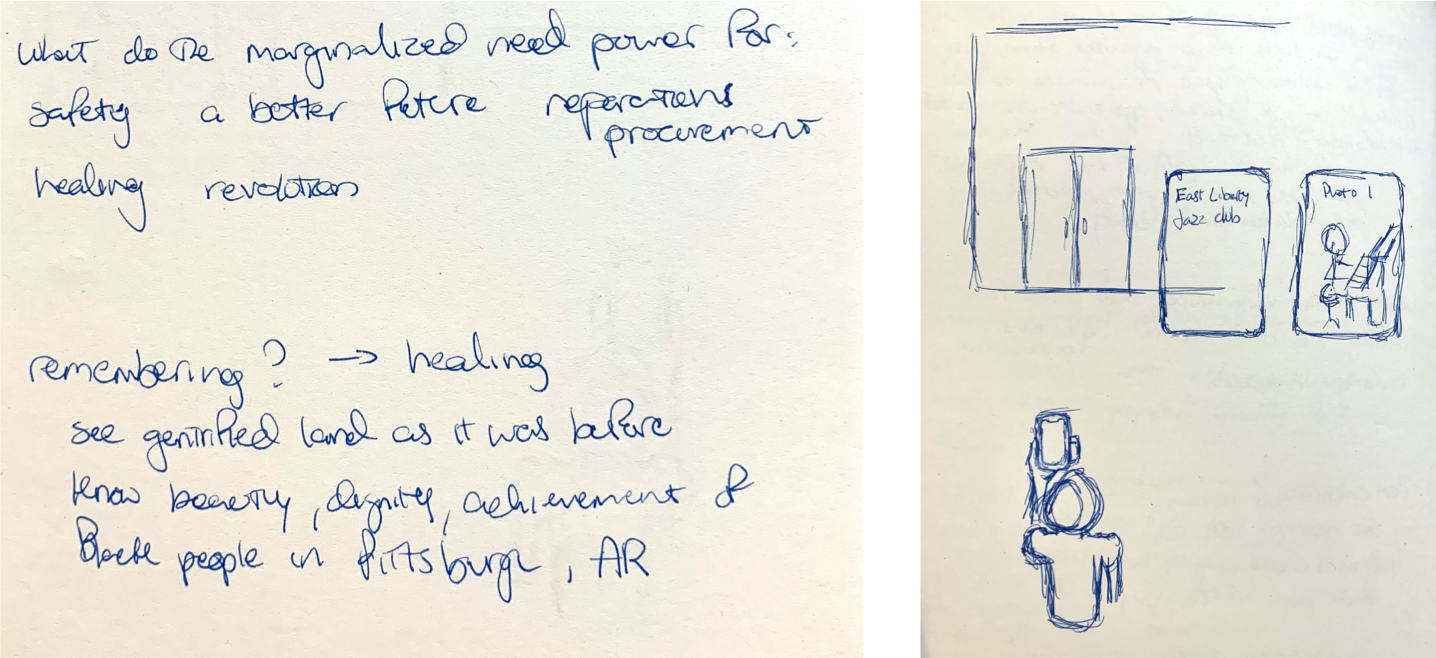 What do the marginalized need power for:
safety a better future reparations
procurement
healing revolution
remembering? → healing
see gentrified land as it was before
know beauty, dignity, achievement of
Black people in Pittsburgh, AR
East Liberty
Jazz club
Photo 1